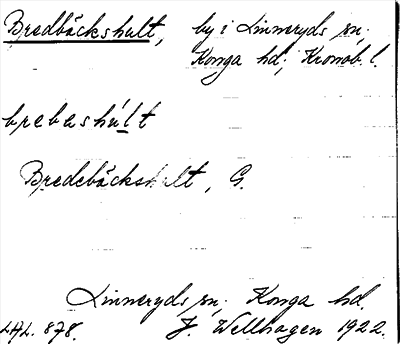 Bredbäckshult, by i Linneryds sn,
Konga hd, Kronob. l.
brebashúlt
Bredebäckshult, G.
Linneryds sn. Konga hd.
LAL. 878. J. Wellhagen 1922.